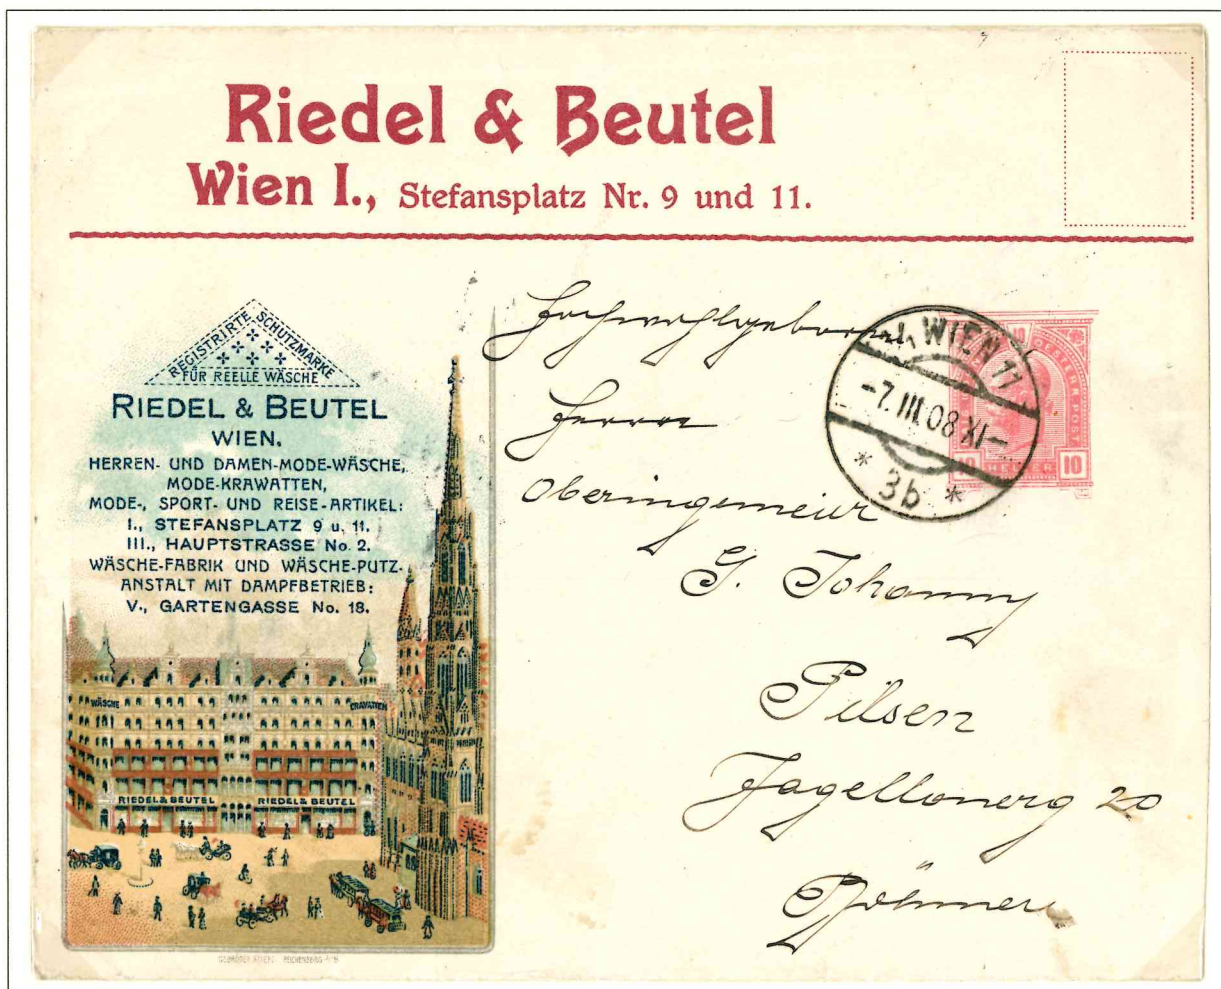 Riedel & Beutel
Wien I., Stefansplatz Nr. 9 und 11.
REGISTRIRTE SCHUTZMARKE
FÜR REELLE WÄSCHE
RIEDEL & BEUTEL
WIEN.
HERREN- UND DAMEN-MODE-WÄSCHE,
MODE-KRAWATTEN,
MODE-, SPORT- UND REISE-ARTIKEL:
I., STEFANSPLATZ 9 u. 11.
III., HAUPTSTRASSE No. 2.
WÄSCHE-FABRIK UND WÄSCHE-PUTZ-
ANSTALT MIT DAMPFBETRIEB:
V., GARTENGASSE No. 18.
WÄSCHE
CRAVATTEN
RIEDEL & BEUTEL
RIEDEL & BEUTEL
Herrn
Oberingenieur
G. Johanny
Pilsen
Jagellonerg 20
Böhmen
WIEN 11
-7.III.08 XI-
* 3b *
10
OESTERR. POST
10 HELLER 10